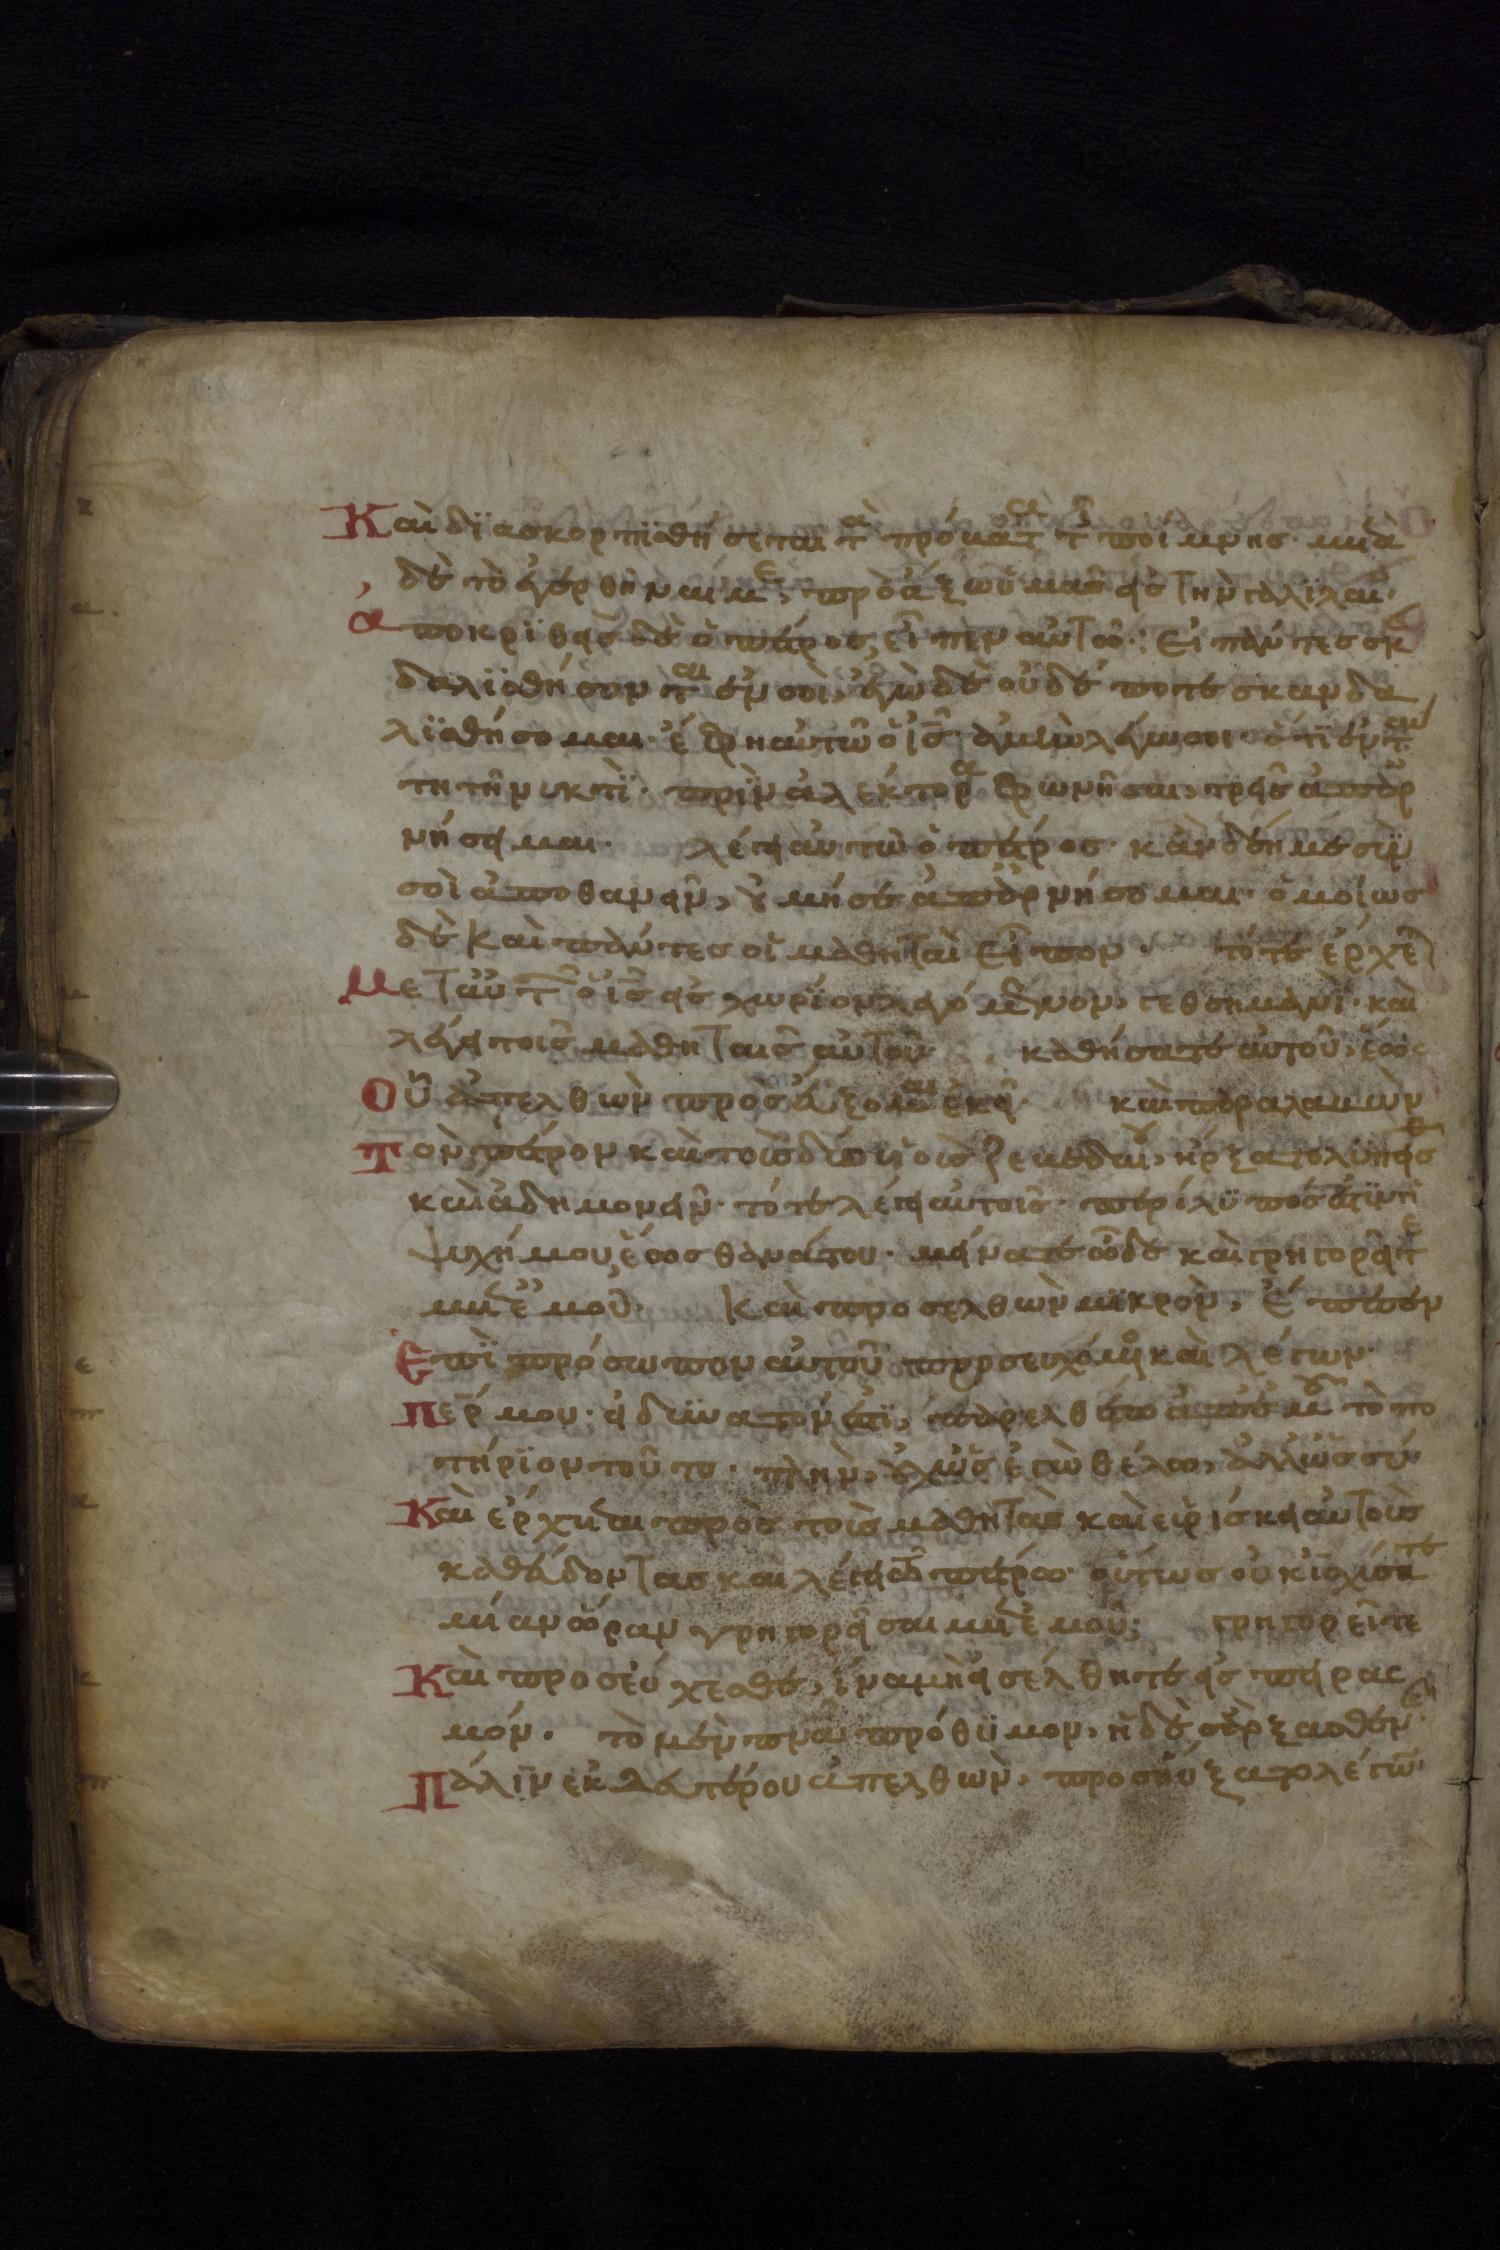 Καὶ δϊασκορπϊσθήσεται τὰ πρόβατ τ ποίμνης· μετὰ
δὲ τὸ ἐγερθῆναι με, προάξω ὑμᾶς εἰς τὴν γαλιλαί·
ἀποκρϊθεὶς δὲ ὁ πέτρος, εἶπεν αὐτῶ· Εἰ πάντες σκ
δαλϊσθήσονται ἐν σοὶ, ἐγὼ δὲ οὐδέποτε σκανδα
λϊσθήσομαι· ἔφη αὐτῶ ὁ ις· ἀμὴν λέγω σοι· ὅτϊ ἐν ταύ
τη τῆ νυκτὶ· πρὶν ἀλέκτορα φωνῆσαι, τρεῖς ἀπαρ
νήσει με· λέγει αὐτῶ ὁ πέτρος· κἂν δέη με σὺν
σοὶ ἀποθανεῖν, οὐ μή σε ἀπαρνήσομαι· ὁμοίως
δὲ καὶ πάντες οἱ μαθηταὶ εἶπον· τότε ἔρχεται
Μετ αὐτ ὁ ις εἰς χωρίον λεγόμενον, γεθσημανῆ· καὶ
λέγει τοῖς μαθηταῖς αὐτοῦ· καθήσατε αὐτοῦ, ἕως
Οὗ ἀπελθὼν προσεύξομαι ἐκεῖ· καὶ παραλαβὼν
Τὸν πέτρον καὶ τοὺς δύο υἱοὺς ζεβεδαίου, ἤρξατο λυπεῖσθ
καὶ ἀδημονεῖν· τότε λέγει αὐτοῖς· περίλϋπός ἐστϊν ἡ
ψυχή μου, ἕως θανάτου· μείνατε ὧδε καὶ γρηγορεῖτε
μετ ἐμοῦ· Καὶ προσελθὼν μϊκρὸν, ἔπεσεν
Ἐπὶ πρόσωπον αὐτοῦ προσευχόμενος καὶ λέγων·
Περ μου· εἰ δϋνατόν ἐστϊ, παρελθέτω ἀπ ἐμοῦ τὸ πο
τήρϊον τοῦτο· πλὴν, οὐχ ὡς ἐγὼ θέλω, ἀλλ ὡς σύ·
Καὶ ἔρχεται πρὸς τοὺς μαθητὰς καὶ εὑρίσκει αὐτοὺς
καθεύδοντας καὶ λέγει τῶ πέτρω· οὕτως οὐκ ἰσχύσατε
μίαν ὥραν γρηγορῆσαι μετ ἐμοῦ; γρηγορεῖτε
Καὶ προσεύχεσθε, ἵνα μὴ εἰσέλθητε εἰς πειρας
μόν· τὸ μὲν πνα πρόθϋμον, ἡ δὲ σὰρξ ασθενή·
Πάλϊν ἐκ δευτέρου ἀπελθὼν, προσηύξατο λέγων